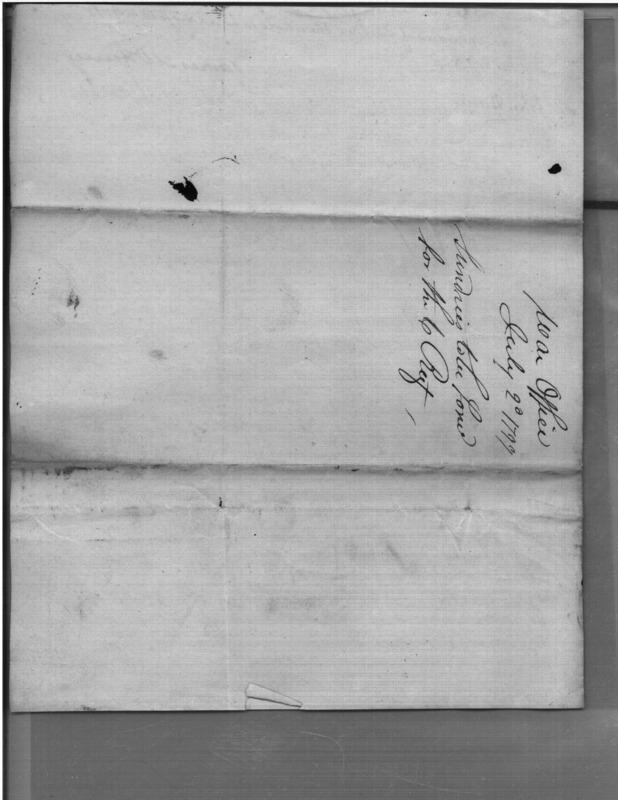 War Office
July 2d 1799
Sundries to be
for the 6 Regt